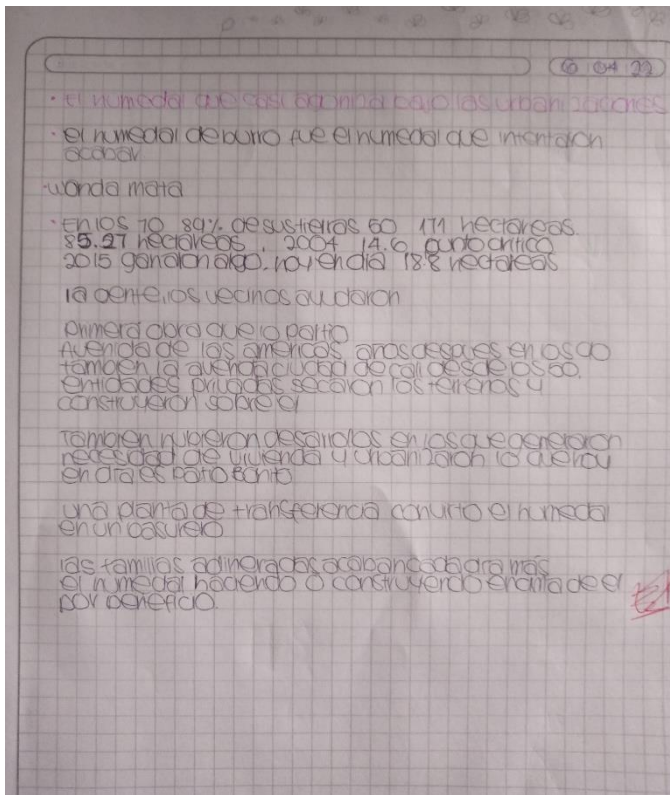 6 04 22
· el humedal que casi agoniza bajo las urbanizaciones
· el humedal de burro fue el humedal que intentaron
acabar
· wanda mata
· En los 70 89% de sus tierras 50 171 hectareas.
85.27 hectareos. 2004 14.6 punto critico
2015 ganaron algo. hoy en dia 18.8 hectareas
la gente, los vecinos ayudaron
primera obra que lo partio
Avenida de las americas años despues en los 90
tambien la avenida ciudad de cali desde los 50.
entidades privadas secaron los terrenos y
construyeron sobre el
Tambien hubieron desarrollos en los que generaron
necesidad de vivienda y urbanizaron lo que hoy
en dia es patio bonito
una planta de transferencia convirtio el humedal
en un basurero
las familias adineradas acaban cada dia más
el humedal haciendo o construyendo encima de el
por beneficio.